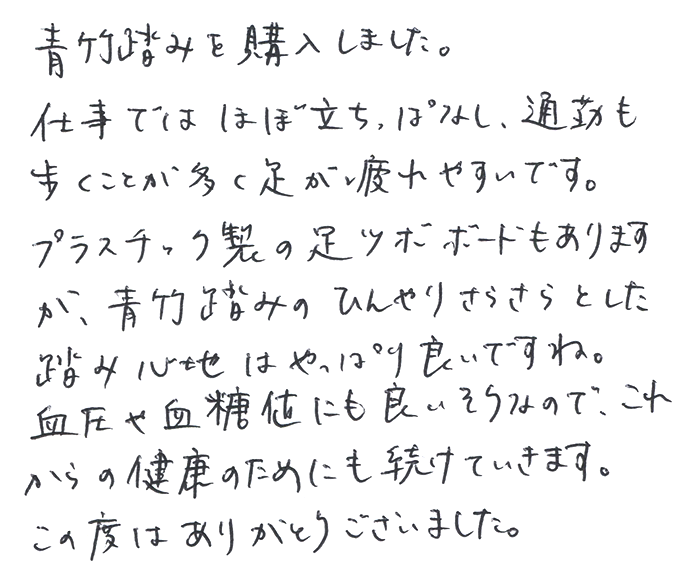 青竹踏みを購入しました。
仕事ではほぼ立ちっぱなし、通勤も
歩くことが多く足が疲れやすいです。
プラスチック製の足ツボボードもあります
が、青竹踏みのひんやりさらさらとした
踏み心地はやっぱり良いですね。
血圧や血糖値にも良いそうなので、これ
からの健康のためにも続けていきます。
この度はありがとうございました。